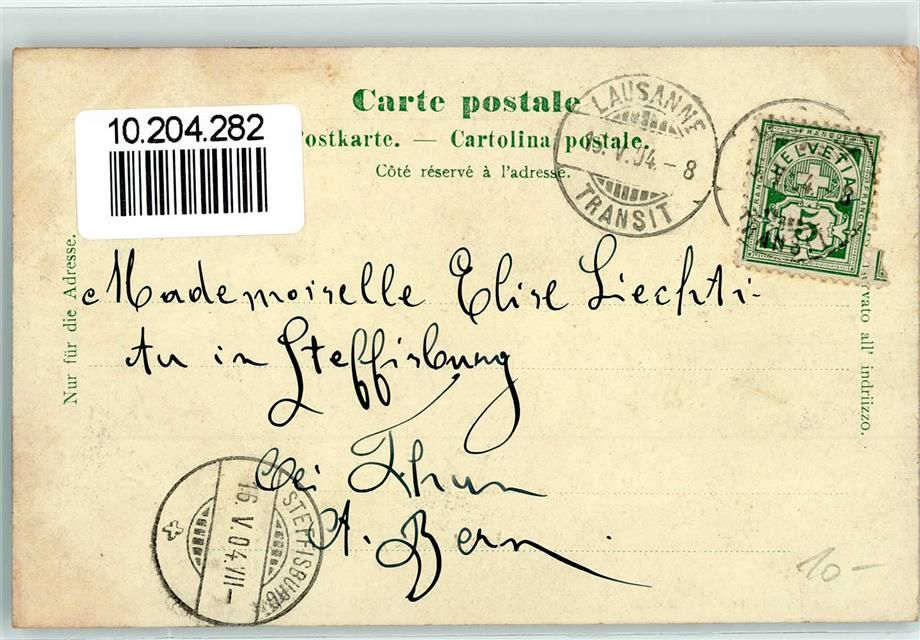 Carte postale
10.204.282
Postkarte. — Cartolina postale.
Côté réservé à l'adresse.
LAUSANNE
15.V.04.-8
TRANSIT
HELVETIA
FRANCO
5
Nur für die Adresse.
Mademoiselle Elise Liechti-
Au in Steffisburg
bei Thun
Ct. Bern.
vato all' indriizzo.
STEFFISBURG
16.V.04.VII-
10-